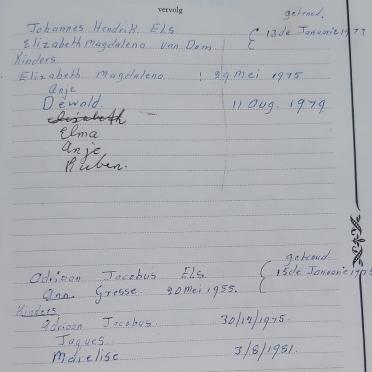 vervolg
getroud.
Johannes Hendrik Els.
Elizabeth Magdalena van Dam. { 13de Januarie 1973
Kinders
Elizabeth Magdalena : 29 Mei 1975
Anje
Dewald. 11 Aug. 1979
Elizabeth
Elma
Anje
Ruben.
getroud
Adriaan Jacobus Els
Ann Gresse 20 Mei 1955. { 15de Januarie
Kinders
Adriaan Jacobus. 30/ /1975.
Jaques
Marelise 3/8/1981.